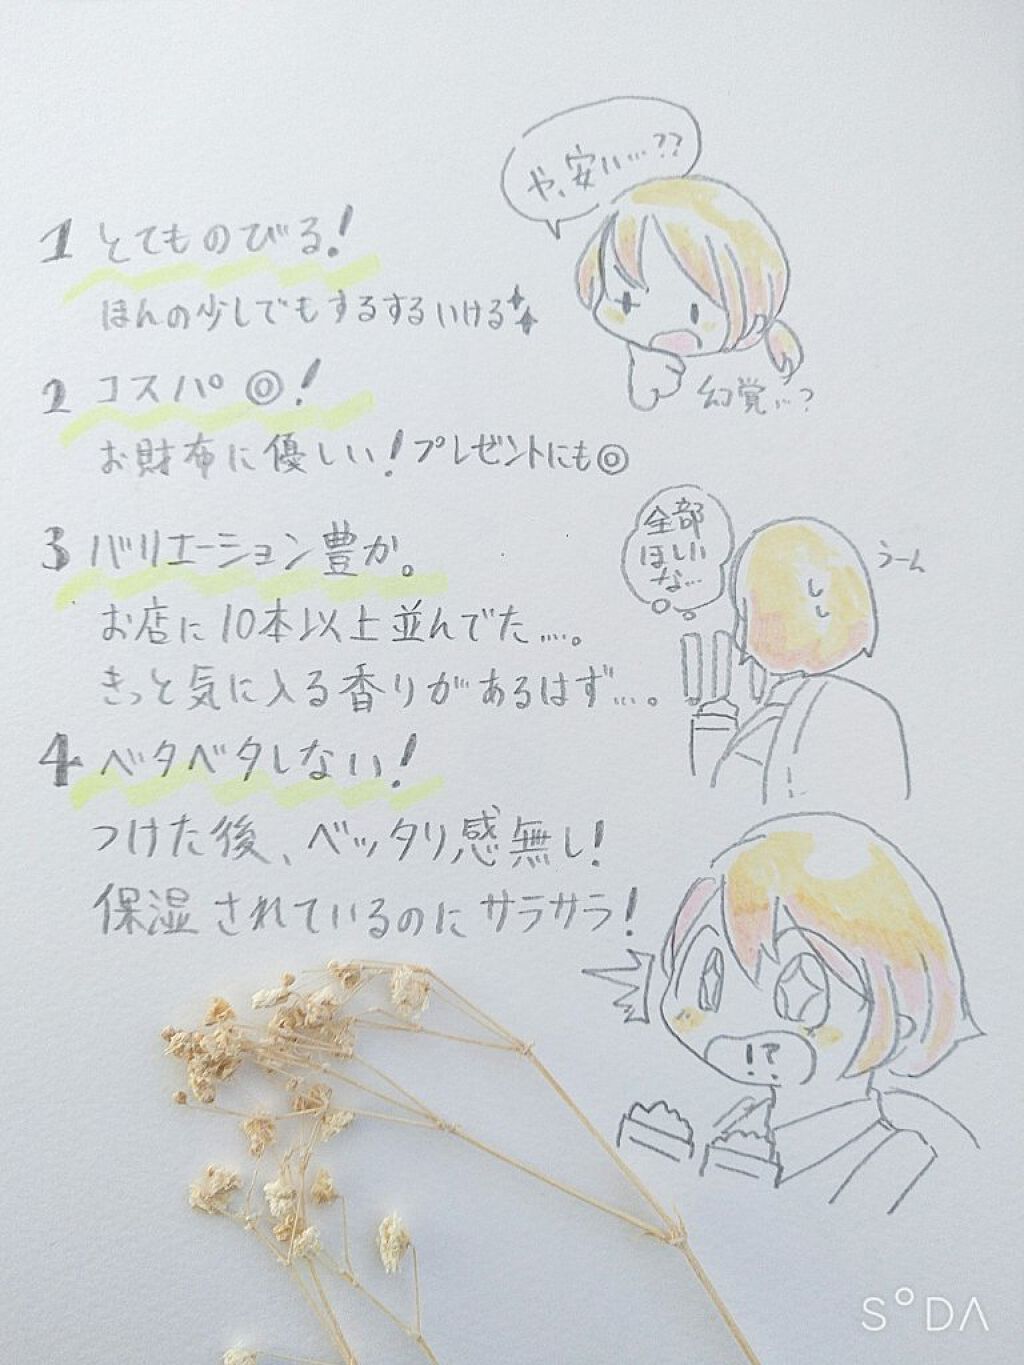 や、安い…??
1 とてものびる!
ほんの少しでもするするいける
幻覚…?
2 コスパ ◎!
お財布に優しい!プレゼントにも◎
全部
ほしい
な…
うーん
3 バリエーション豊か。
お店に10本以上並んでた…。
きっと気に入る香りがあるはず…。
4 ベタベタしない!
つけた後、ベッタリ感無し!
保湿されているのにサラサラ!
!?
SODA